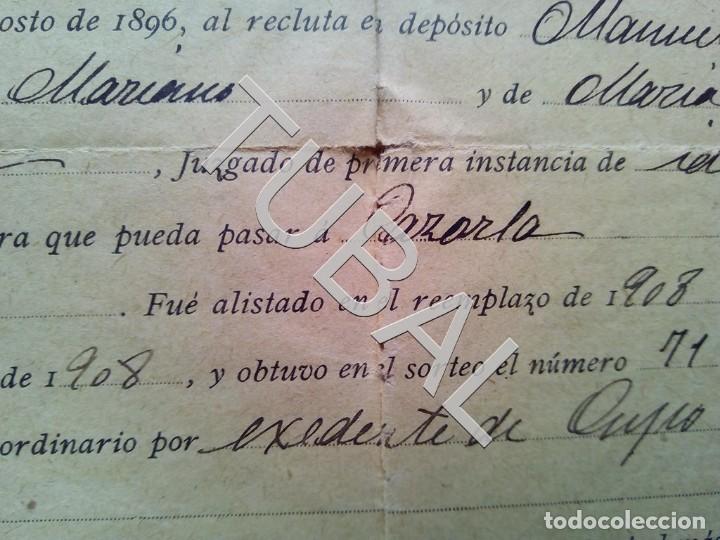 osto de 1896, al recluta en depósito Manue
Mariano y de Maria
, Juzgado de primera instancia de id
ra que pueda pasar á Cazorla
. Fué alistado en el reemplazo de 1908
de 1908, y obtuvo en el sorteo el número 71
ordinario por exedente de Cupo
TUBAL
todocoleccion